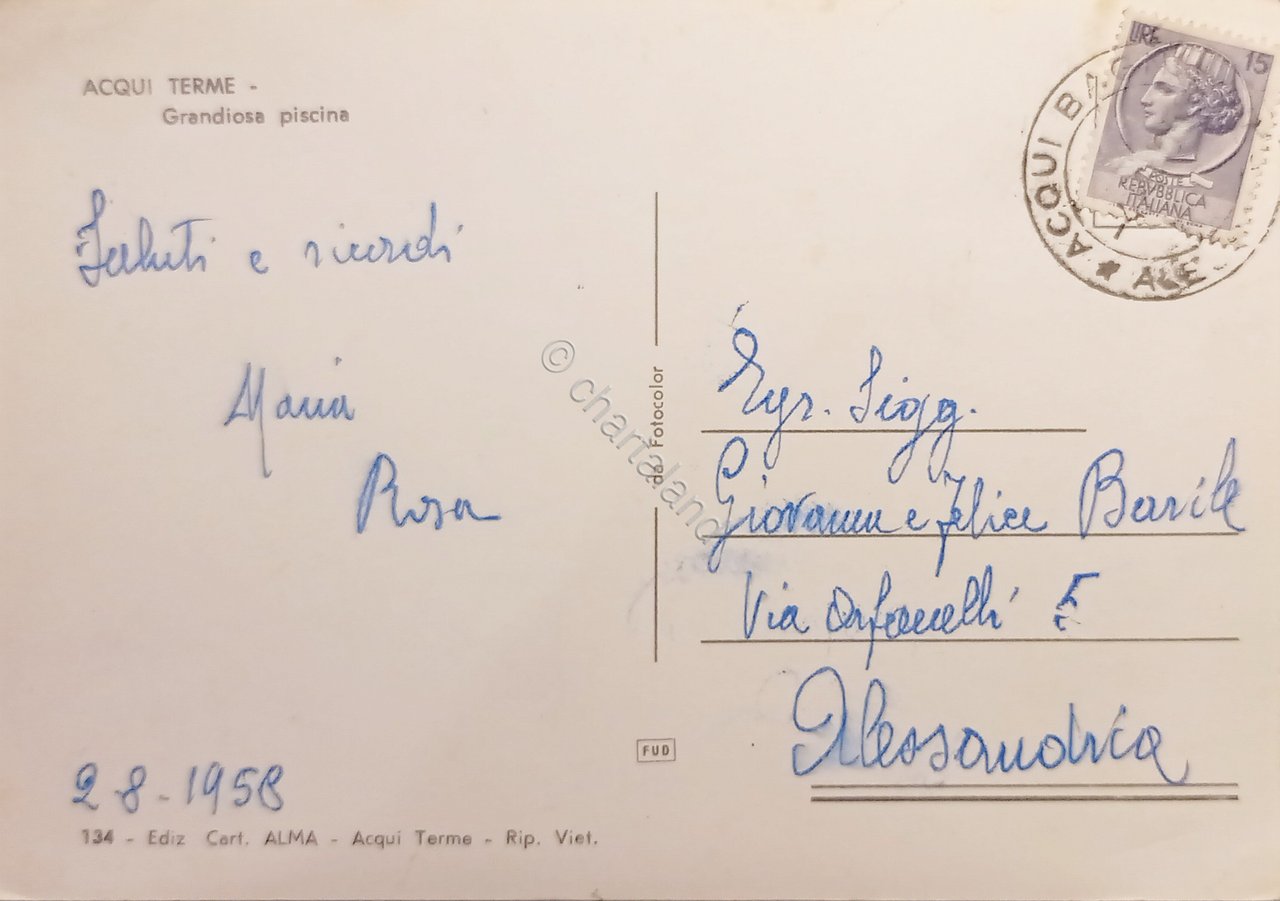 ACQUI TERME -
Grandiosa piscina
Saluti e ricordi
Maria
Rosa
2-8-1958
134 - Ediz Cart. ALMA - Acqui Terme - Rip. Viet.
da Fotocolor
FUD
© chartaland
LIRE 15
POSTE
REPVBBLICA
ITALIANA
ACQUI BAGNI
* ALE
Egr. Sigg.
Giovanni e Felice Barile
Via Orfanelli 5
Alessandria